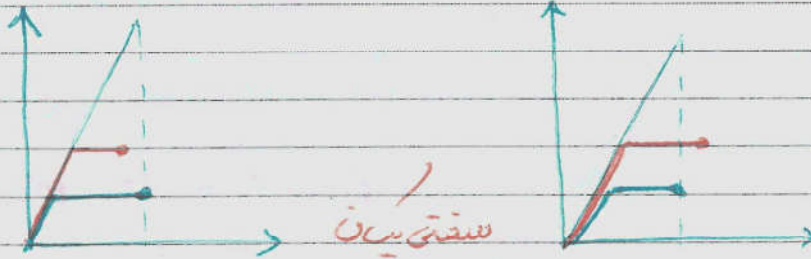 سختی یکسان